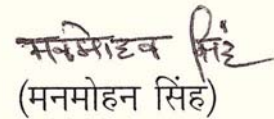 मनमोहन सिंह
(मनमोहन सिंह)